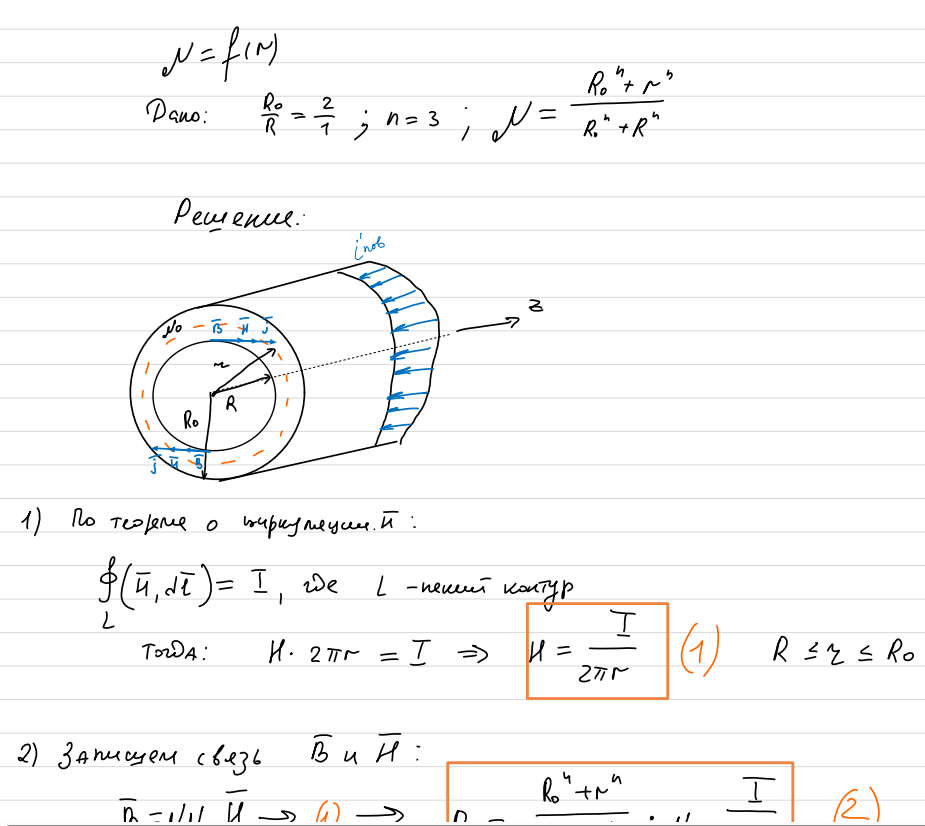 μ = f(r)
Дано: R₀/R = 2/1 ; n = 3 ; μ = (R₀ⁿ + rⁿ)/(R₀ⁿ + Rⁿ)
Решение:
i'пов
μ₀ B̅ H̅ J̅
z
r
R
R₀
J̅ H̅ B̅
1) По теореме о циркуляции H̅ :
∮(H̅, dl̅) = I, где L - некий контур
L
Тогда: H · 2πr = I ⇒ H = I/(2πr) (1) R ≤ r ≤ R₀
2) Запишем связь B̅ и H̅ :
B̅ = μμ₀ H̅ → (1) → B = (R₀ⁿ + rⁿ) I (2)